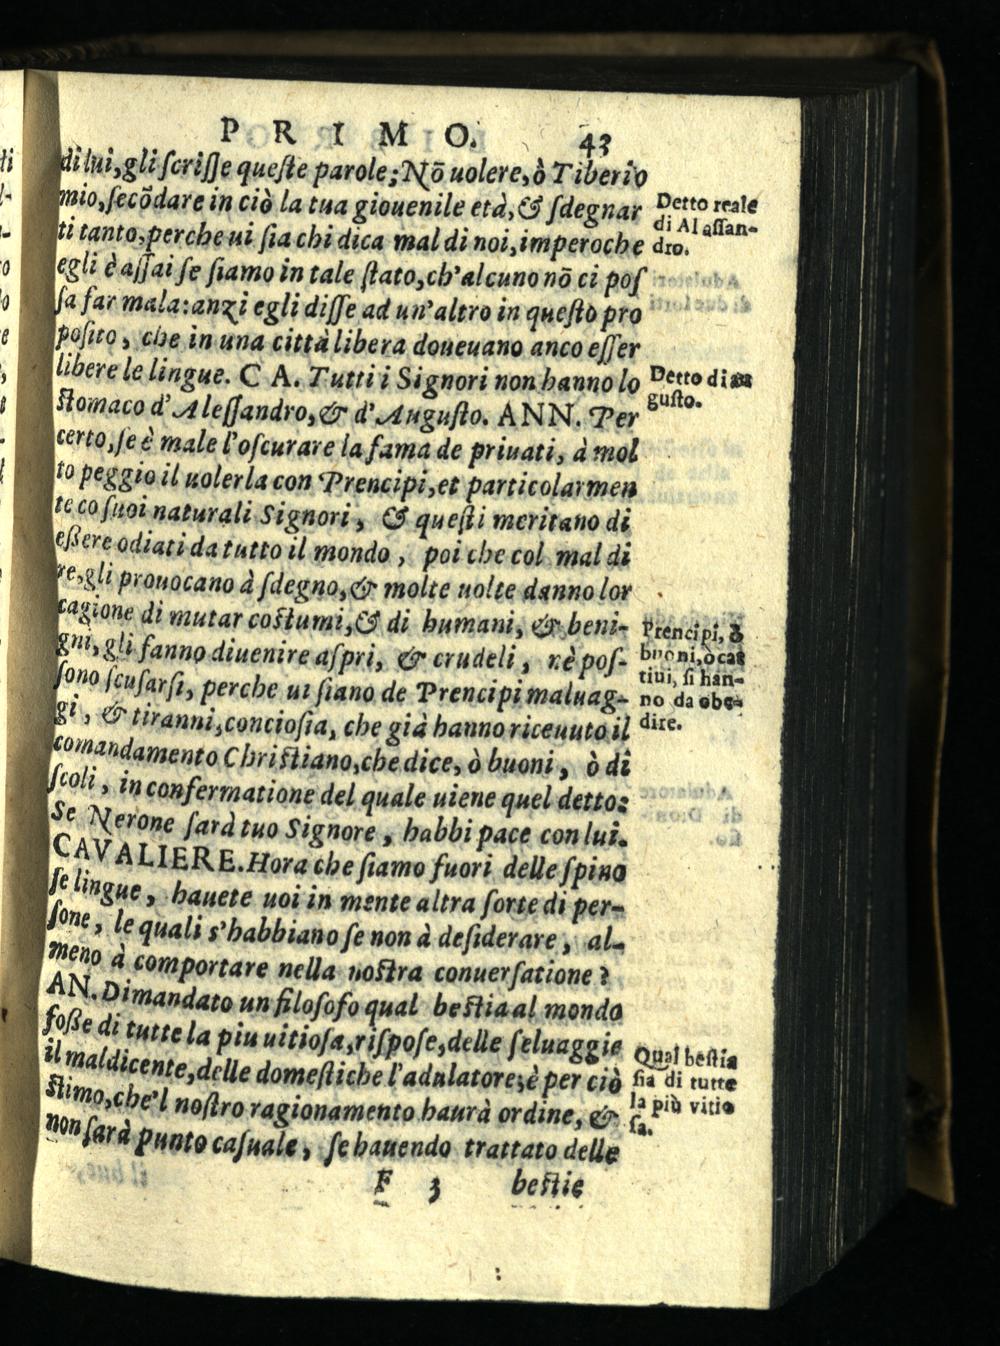 PRIMO. 43
di lui, gli scriſſe queſte parole; Nō uolere, ò Tiberio
mio, ſecōdare in ciò la tua giouenile età, & ſdegnar
ti tanto, perche ui ſia chi dica mal di noi, imperoche
egli è aſſai ſe ſiamo in tale ſtato, ch'alcuno nō ci poſ
ſa far mala: anzi egli diſſe ad un'altro in queſto pro
poſito, che in una città libera doueuano anco eſſer
libere le lingue. CA. Tutti i Signori non hanno lo
ſtomaco d'Aleſſandro, & d'Auguſto. ANN. Per
certo, ſe è male l'oſcurare la fama de priuati, à mol
to peggio il uolerla con Prencipi, et particolarmen
te co ſuoi naturali Signori, & queſti meritano di
eſſere odiati da tutto il mondo, poi che col mal di
re, gli prouocano à ſdegno, & molte uolte danno lor
cagione di mutar coſtumi, & di humani, & beni-
gni, gli fanno diuenire aſpri, & crudeli, nè poſ-
ſono ſcuſarſi, perche ui ſiano de Prencipi maluag-
gi, & tiranni, concioſia, che già hanno riceuuto il
comandamento Chriſtiano, che dice, ò buoni, ò di
ſcoli, in confermatione del quale uiene quel detto:
Se Nerone ſarà tuo Signore, habbi pace con lui.
CAVALIERE. Hora che ſiamo fuori delle ſpino
ſe lingue, hauete uoi in mente altra ſorte di per-
ſone, le quali s'habbiano ſe non à deſiderare, al-
meno à comportare nella noſtra conuerſatione?
AN. Dimandato un filoſofo qual beſtia al mondo
foſſe di tutte la piu uitioſa, riſpoſe, delle ſeluaggie
il maldicente, delle domeſtiche l'adulatore; è per ciò
ſtimo, che'l noſtro ragionamento haurà ordine, &
non ſarà punto caſuale, ſe hauendo trattato delle
F 3 beſtie
Detto reale
di Alaſſan-
dro.
Detto di au
guſto.
Prencipi, ò
buoni, ò cat
tiui, ſi han-
no da obe-
dire.
Qual beſtia
ſia di tutte
la più vitio
ſa.